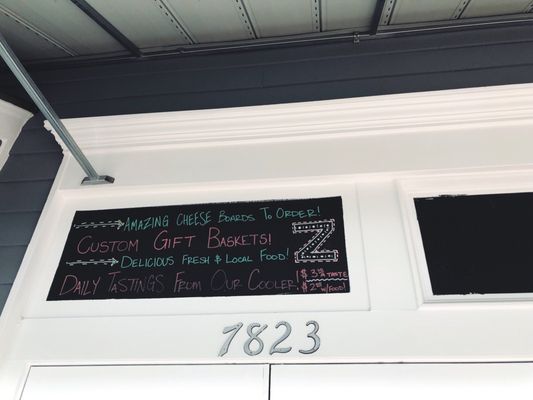 AMAZING CHEESE BOARDS TO ORDER!
CUSTOM GIFT BASKETS!
DELICIOUS FRESH & LOCAL FOOD!
DAILY TASTINGS FROM OUR COOLER!
Z
TASTE
W/ FOOD!
1823